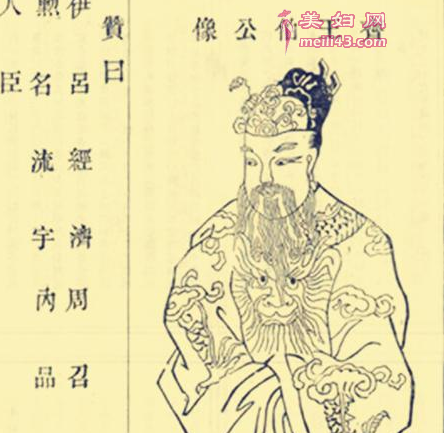 公像
贊曰
伊呂經濟周召
勲名流宇內品
人臣
美妇网
meili43.com